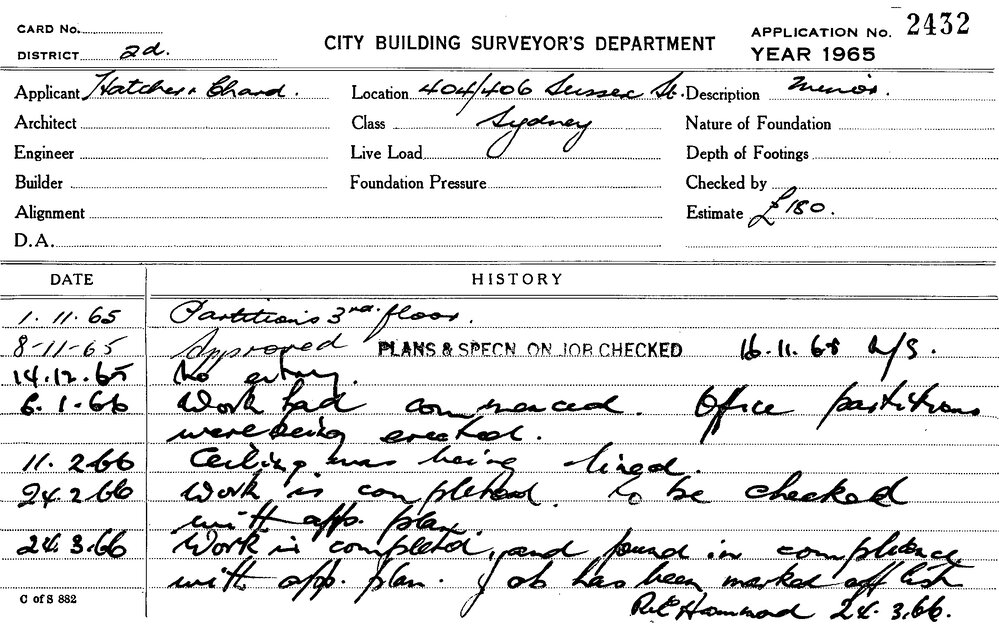 CARD No.
DISTRICT 2d.
CITY BUILDING SURVEYOR'S DEPARTMENT
APPLICATION No. 2432
YEAR 1965
Applicant Hatcher & Chard. Location 404/406 Sussex St. Description Minor.
Architect Class Sydney Nature of Foundation
Engineer Live Load Depth of Footings
Builder Foundation Pressure Checked by
Alignment Estimate £180.
D.A.
DATE HISTORY
1.11.65 Partitions 3rd. floor.
8-11-65 Approved PLANS & SPECN ON JOB CHECKED 16.11.65
14.12.65 No entry.
6.1.66 Work had commenced. Office partitions
were being erected.
11.2.66 Ceiling was being lined.
24.2.66 Work is completed. To be checked
with app. plan.
24.3.66 Work is completed, and found in compliance
with app. plan. Job has been marked off list
C of S 882
R.E. Hammond 24.3.66.